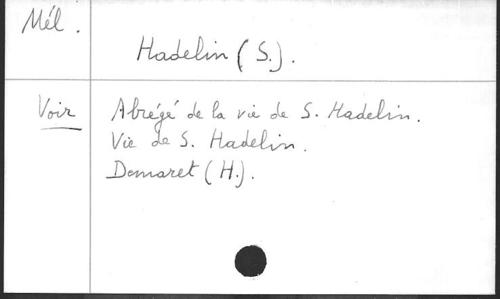 Mél.
Hadelin (S.).
Voir Abrégé de la vie de S. Hadelin.
Vie de S. Hadelin.
Demaret (H.).